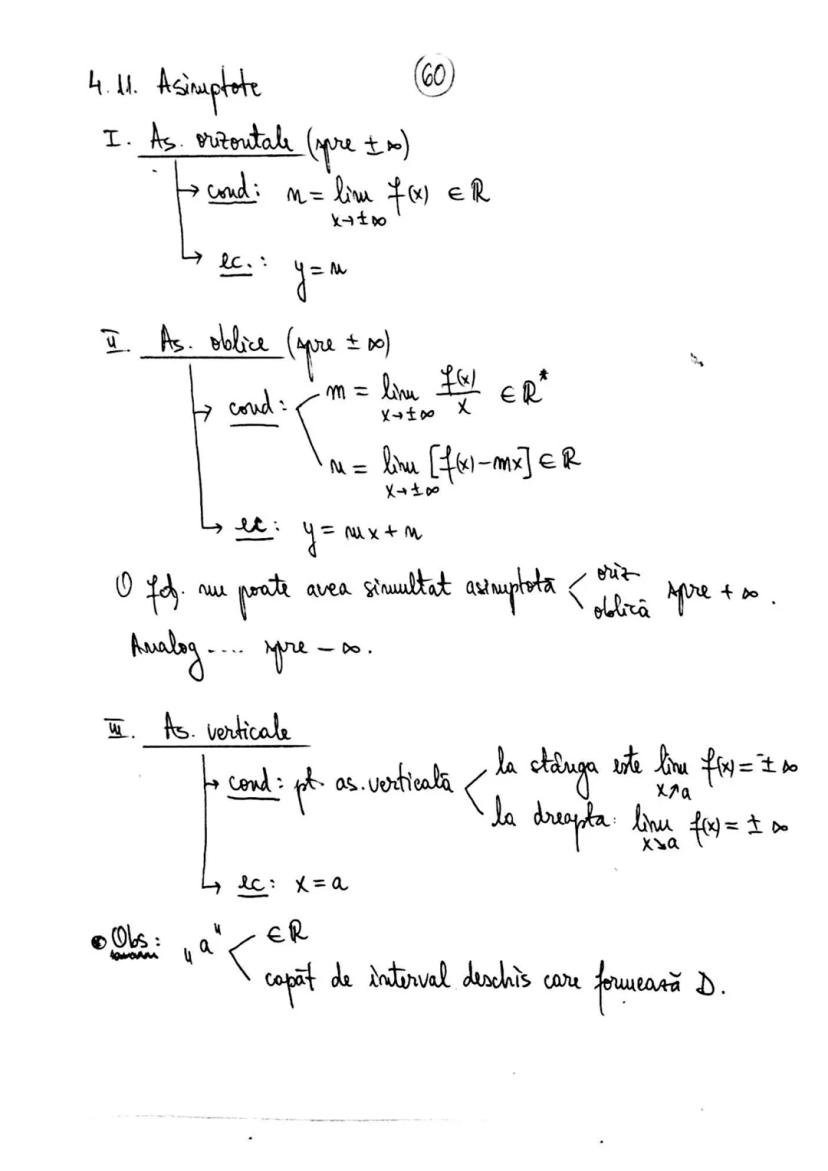 4.11. Asimptote
60
I. As. orizontale (spre ±∞)
cond: n = lim f(x) ∈ ℝ
x→±∞
ec.: y = n
II. As. oblice (spre ±∞)
m = lim f(x)/x ∈ ℝ*
x→±∞
cond:
n = lim [f(x)-mx] ∈ ℝ
x→±∞
ec: y = mx + n
O fcț. nu poate avea simultat asimptotă oriz oblică spre +∞.
Analog .... spre -∞.
III. As. verticale
la stânga este lim f(x) = ±∞
x↗a
cond: pt. as. verticală
la dreapta: lim f(x) = ±∞
x↘a
ec: x = a
Obs: „a" ∈ ℝ
capăt de interval deschis care formează D.